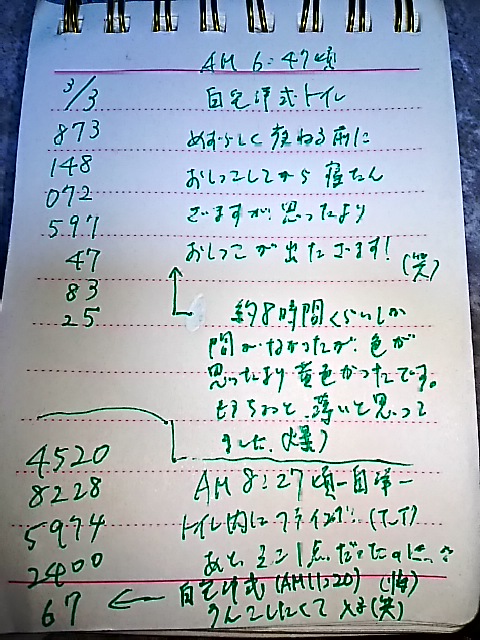 AM 6:47頃
3/3 自宅洋式トイレ
873 めずらしく寝る前に
148 おしっこしてから寝たん
072
597 ざますが、思ったより
47 おしっこが出たざます!
(笑)
83
25 約8時間くらいしか
間がなかったが、色が
思ったより黄色かったです。
もうちょっと薄いと思って
ました(爆)
4520
8228 AM 8:27頃ー自洋ー
5974 トイレ内に (T_T)
2400 あと、1点だったのに
自宅洋式 (AM11:20) (悔)
67 うんこしたくて (笑)